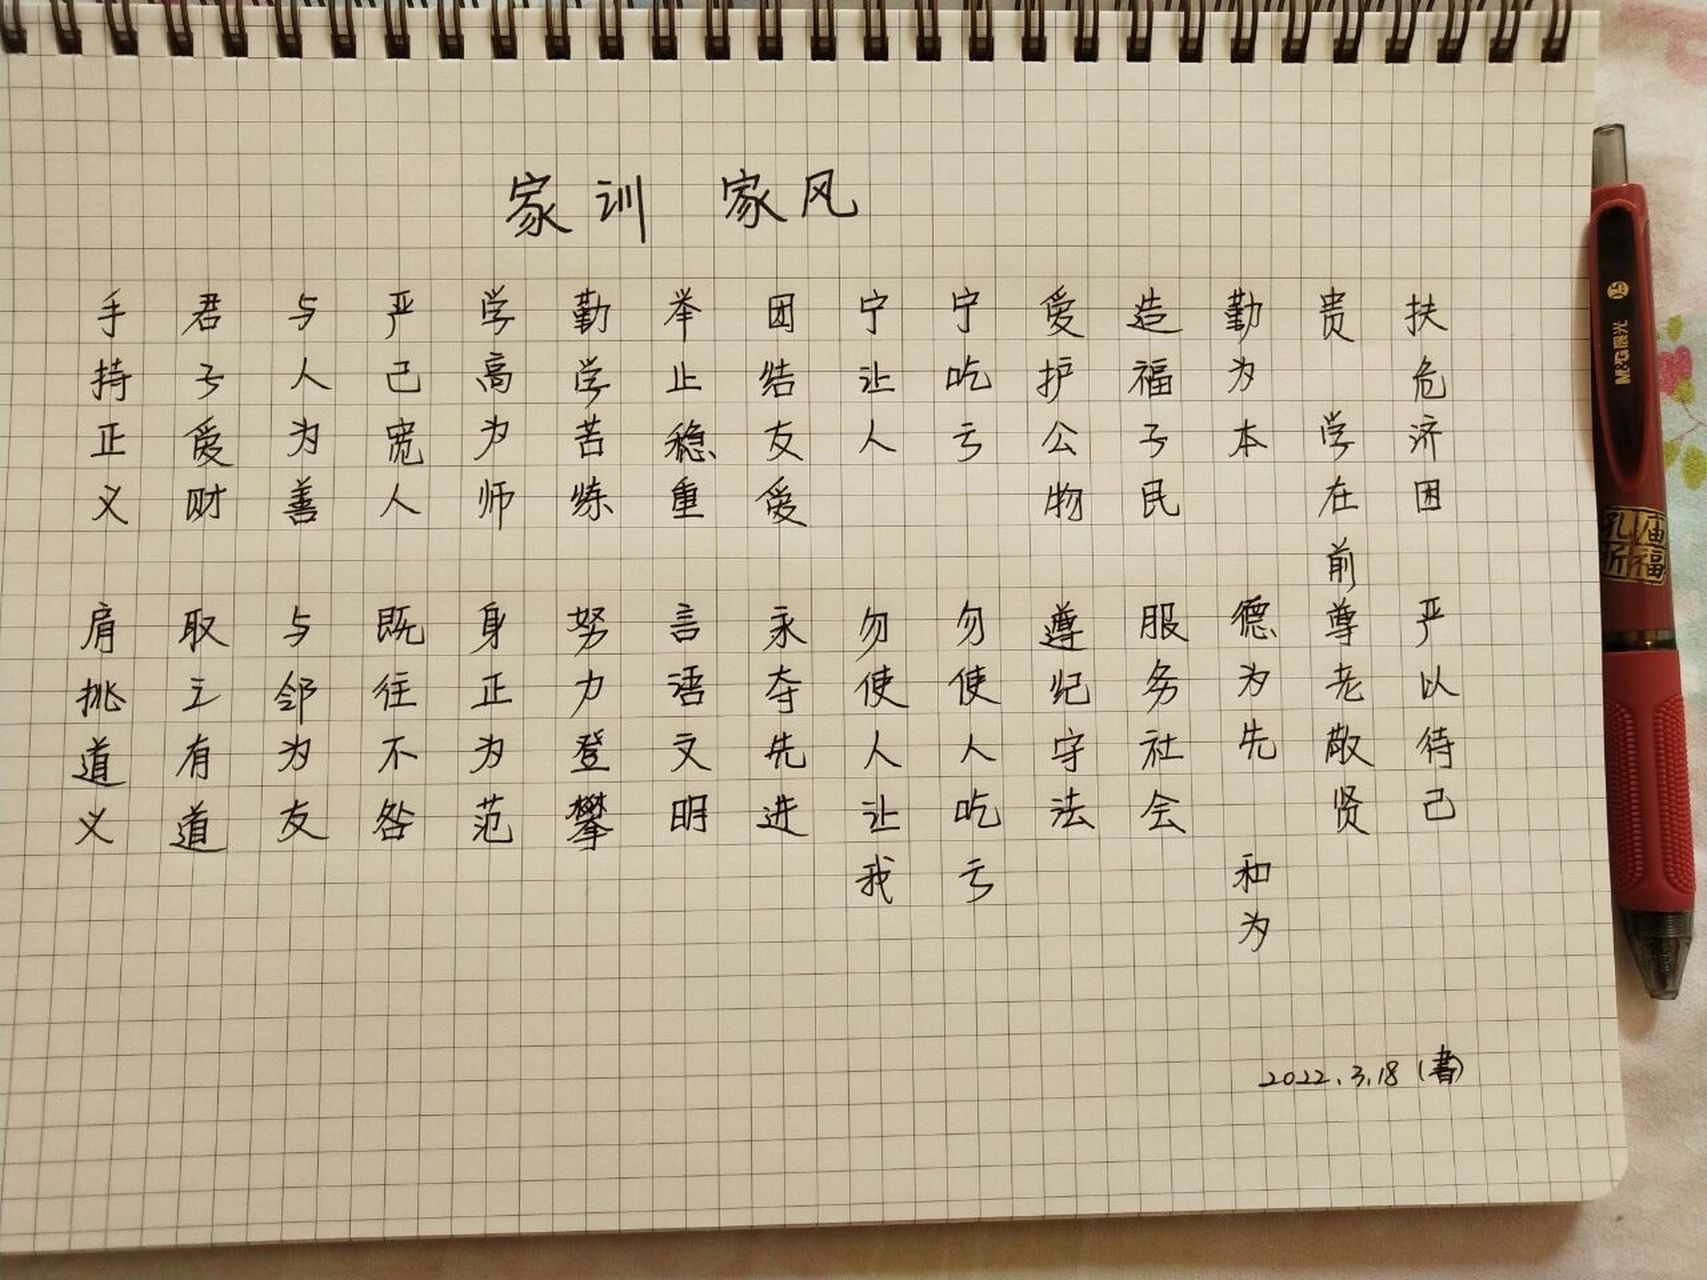 家训 家风
手持正义 肩挑道义
君子爱财 取之有道
与人为善 与邻为友
严己宽人 既往不咎
学高为师 身正为范
勤学苦练 努力登攀
举止稳重 言语文明
团结友爱 永夺先进
宁让人 勿使人让我
宁吃亏 勿使人吃亏
爱护公物 遵纪守法
造福子民 服务社会
勤为本 德为先 和为
贵 学在前 尊老敬贤
扶危济困 严以待己
2022.3.18
0.5
M&G晨光
孔庙
祈福